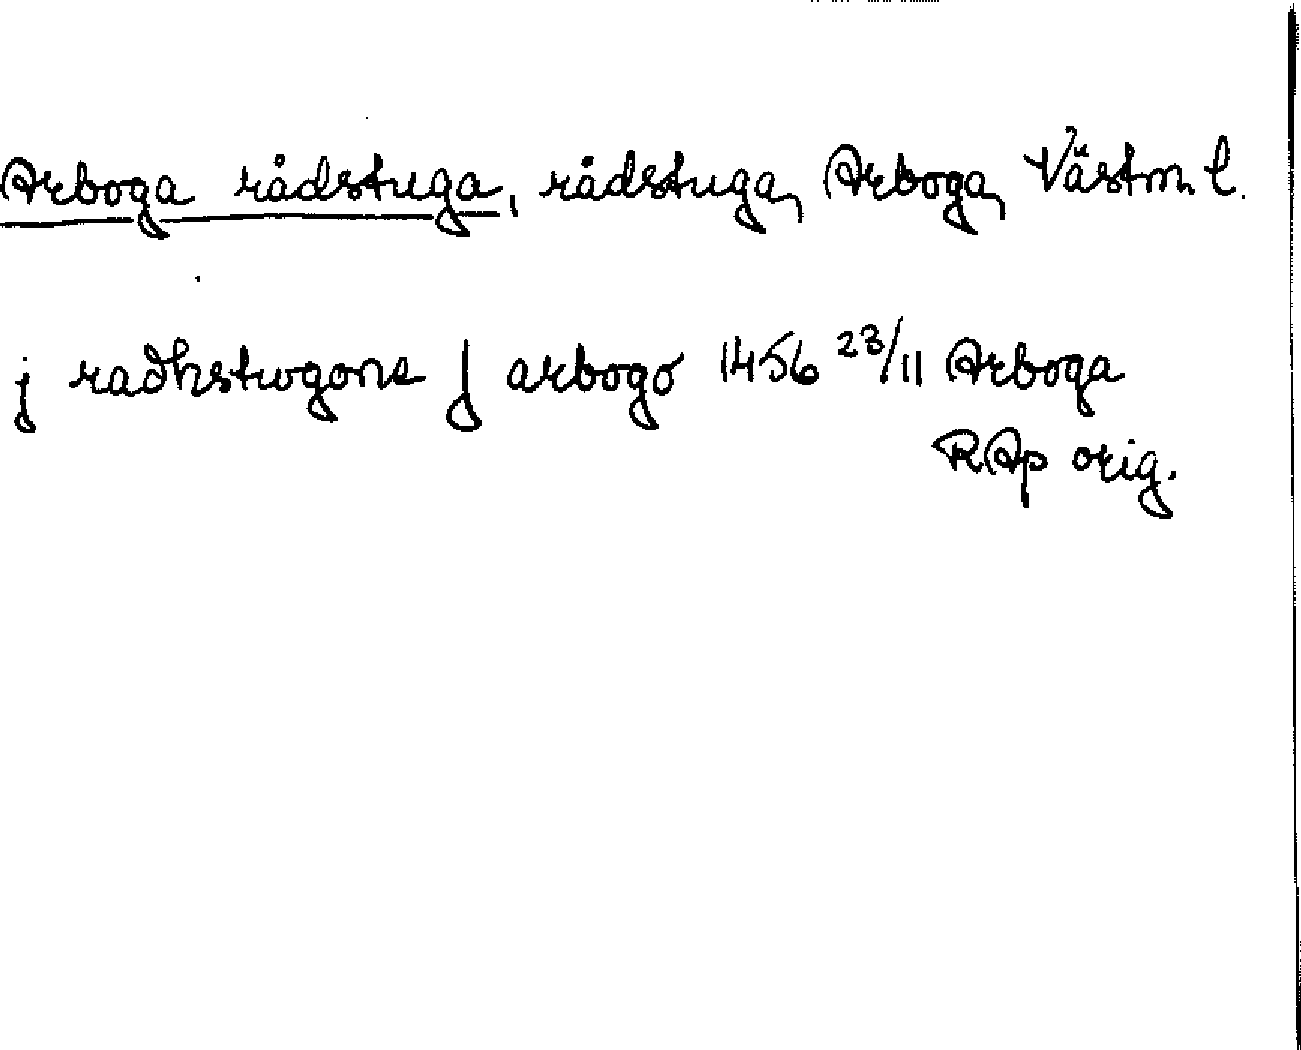 Arboga rådstuga, rådstuga, Arboga, Västm. l.
j radhstwgone J arbogo 1456 23/11 Arboga
RAp orig.